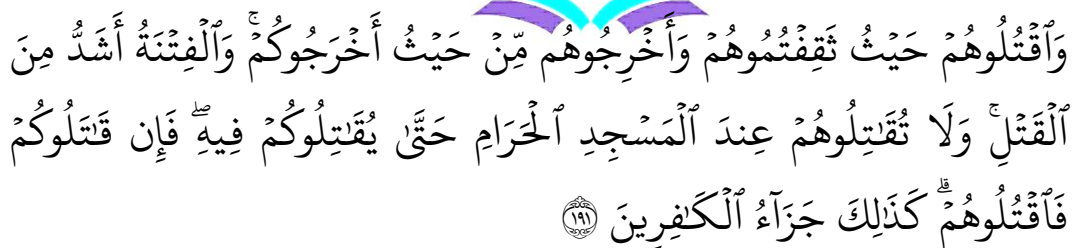 وَٱقۡتُلُوهُمۡ حَيۡثُ ثَقِفۡتُمُوهُمۡ وَأَخۡرِجُوهُم مِّنۡ حَيۡثُ أَخۡرَجُوكُمۡۚ وَٱلۡفِتۡنَةُ أَشَدُّ مِنَ
ٱلۡقَتۡلِۚ وَلَا تُقَٰتِلُوهُمۡ عِندَ ٱلۡمَسۡجِدِ ٱلۡحَرَامِ حَتَّىٰ يُقَٰتِلُوكُمۡ فِيهِۖ فَإِن قَٰتَلُوكُمۡ
فَٱقۡتُلُوهُمۡۗ كَذَٰلِكَ جَزَآءُ ٱلۡكَٰفِرِينَ ١٩١